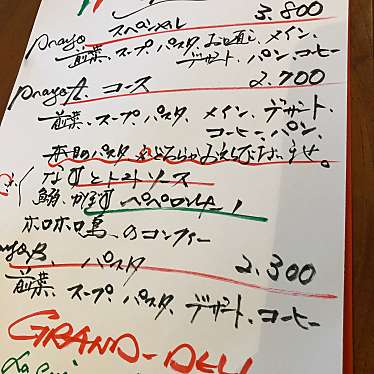 スペシャル 3.800
pranzo 前菜、スープ、パスタ、お口直し、メイン、
デザート、パン、コーヒー
pranzo A. コース 2.700
前菜、スープ、パスタ、メイン、デザート、
コーヒー、パン、
本日のパスタをどちらかおえらび下さいませ。
なすとトマトソース
ペペロンチーノ
ホロホロ鳥、のコンフィー
B. パスタ 2.300
前菜、スープ、パスタ、デザート、コーヒー
GRAND-DELI